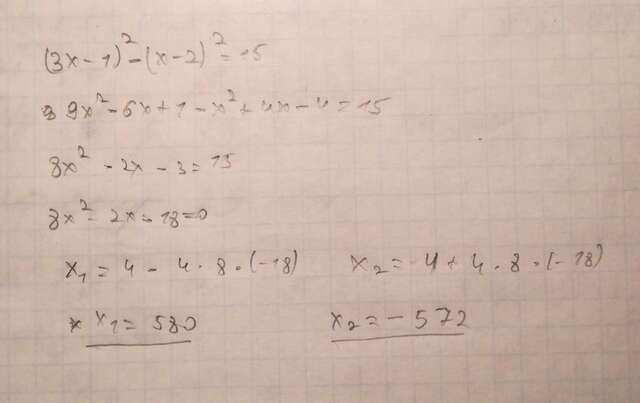 (3x-1)²-(x-2)²=15
9x²-6x+1-x²+4x-4=15
8x²-2x-3=15
8x²-2x-18=0
x₁=4-4·8·(-18) x₂=-4+4·8·(-18)
x₁=580 x₂=-572